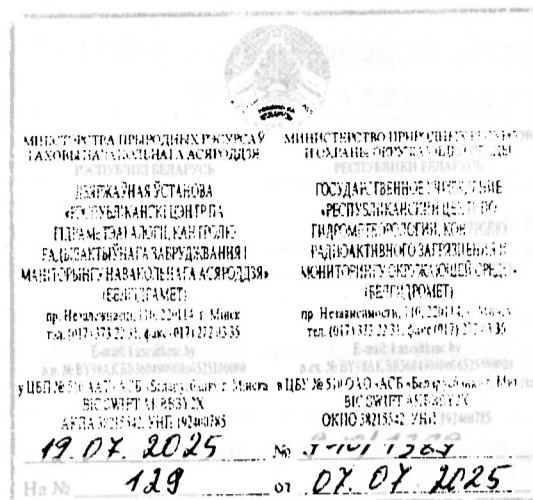 МІНІСТЭРСТВА ПРЫРОДНЫХ РЭСУРСАЎ
І АХОВЫ НАВАКОЛЬНАГА АСЯРОДДЗЯ
РЭСПУБЛІКІ БЕЛАРУСЬ
ДЗЯРЖАЎНАЯ ЎСТАНОВА
«РЭСПУБЛІКАНСКІ ЦЭНТР ПА
ГІДРАМЕТЭАРАЛОГІІ, КАНТРОЛЮ
РАДЫЕАКТЫЎНАГА ЗАБРУДЖВАННЯ І
МАНІТОРЫНГУ НАВАКОЛЬНАГА АСЯРОДДЗЯ»
(БЕЛГІДРАМЕТ)
пр. Незалежнасці, 110, 220114, г. Минск
тэл. (017) 373 22 31, факс (017) 272 03 35
E-mail:
у ЦБП № 510 ААТ «АСБ «Беларусбанк» г. Минска
BIC SWIFT AKBBBY2X
АКПА 38215542, УНП 192400785
МИНИСТЕРСТВО ПРИРОДНЫХ РЕСУРСОВ
И ОХРАНЫ ОКРУЖАЮЩЕЙ СРЕДЫ
РЕСПУБЛИКИ БЕЛАРУСЬ
ГОСУДАРСТВЕННОЕ УЧРЕЖДЕНИЕ
«РЕСПУБЛИКАНСКИЙ ЦЕНТР ПО
ГИДРОМЕТЕОРОЛОГИИ,
РАДИОАКТИВНОГО ЗАГРЯЗНЕНИЯ И
МОНИТОРИНГУ ОКРУЖАЮЩЕЙ СРЕДЫ»
(БЕЛГИДРОМЕТ)
пр. Независимости, 110, 220114, г. Минск
тел. (017) 373 22 31, факс (017) 272 03 35
E-mail:
в ЦБУ № 510 ОАО «АСБ «Беларусбанк» г.
BIC SWIFT AKBBBY2X
ОКПО 38215542, УНП 192400785
19.07.2025 №
На № 129 от 07.07.2025